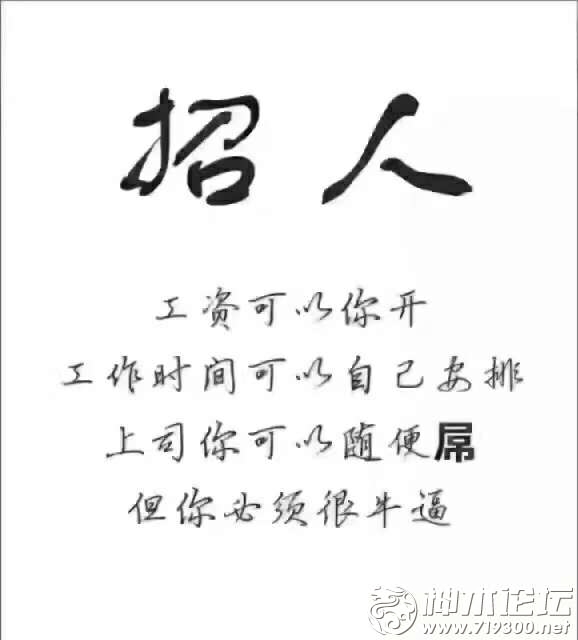 招人
工资可以你开
工作时间可以自己安排
上司你可以随便屌
但你必须很牛逼
神木论坛
www.719300.net